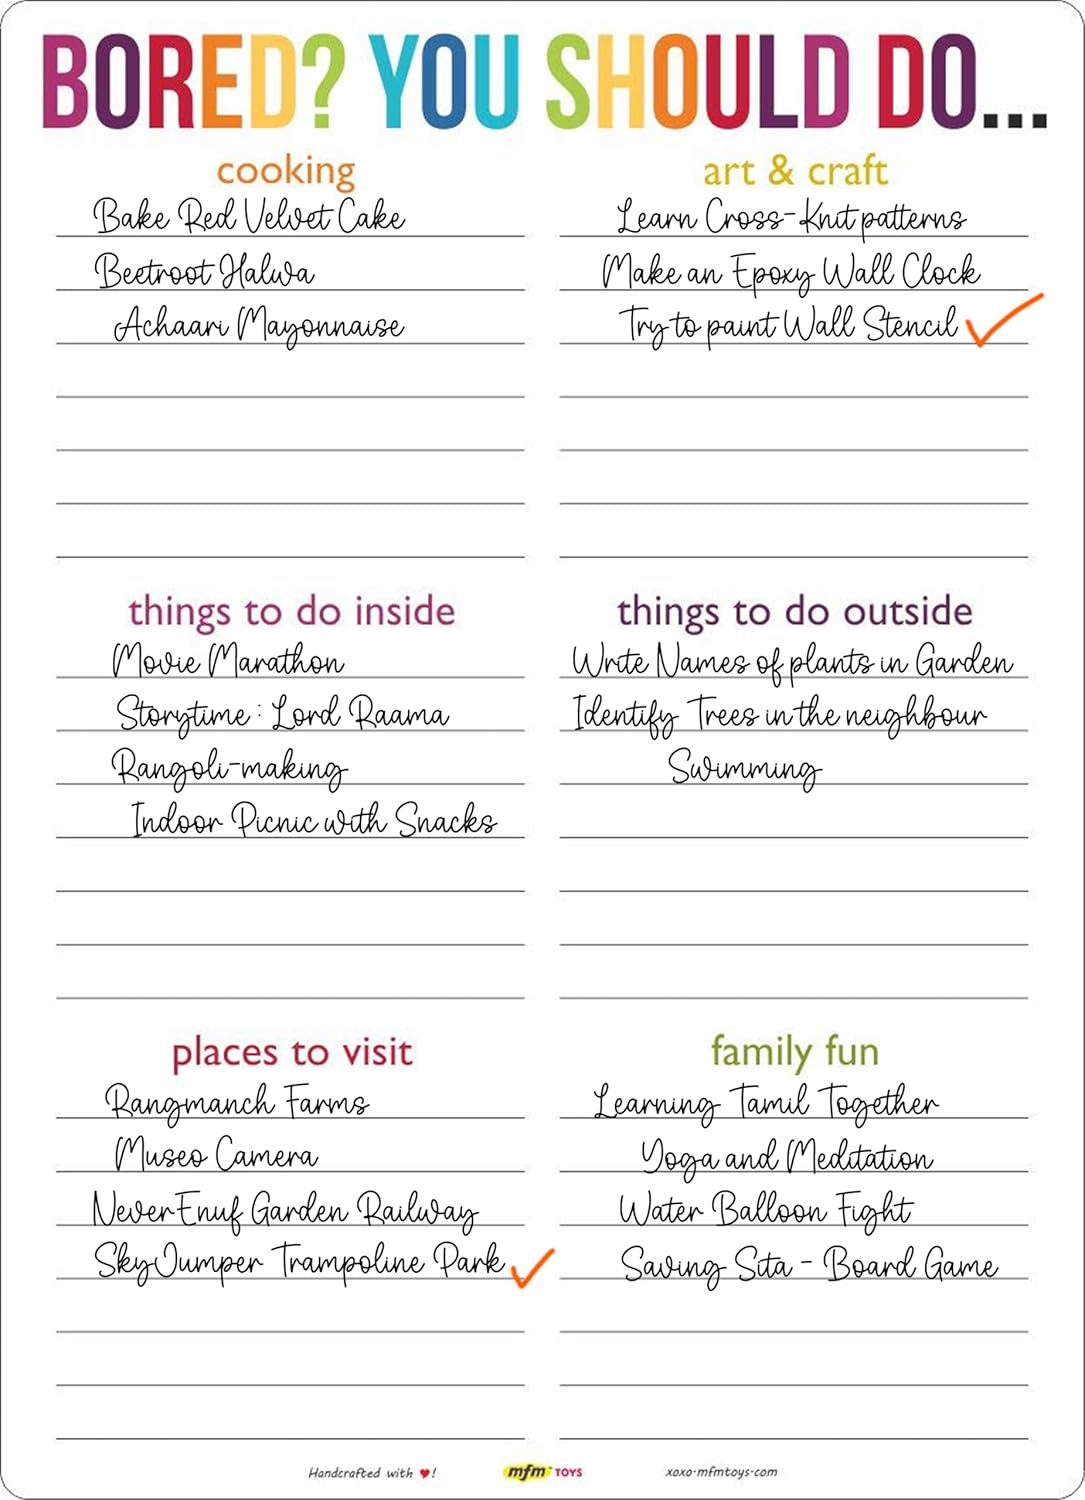 BORED? YOU SHOULD DO...
cooking
Bake Red Velvet Cake
Beetroot Halwa
Achaari Mayonnaise
art & craft
Learn Cross-Knit patterns
Make an Epoxy Wall Clock
Try to paint Wall Stencil
things to do inside
Movie Marathon
Storytime : Lord Raama
Rangoli-making
Indoor Picnic with Snacks
things to do outside
Write Names of plants in Garden
Identify Trees in the neighbour
Swimming
places to visit
Rangmanch Farms
Museo Camera
NeverEnuf Garden Railway
SkyJumper Trampoline Park
family fun
Learning Tamil Together
Yoga and Meditation
Water Balloon Fight
Saving Sita - Board Game
Handcrafted with ♥!
mfm TOYS
xoxo-mfmtoys-com